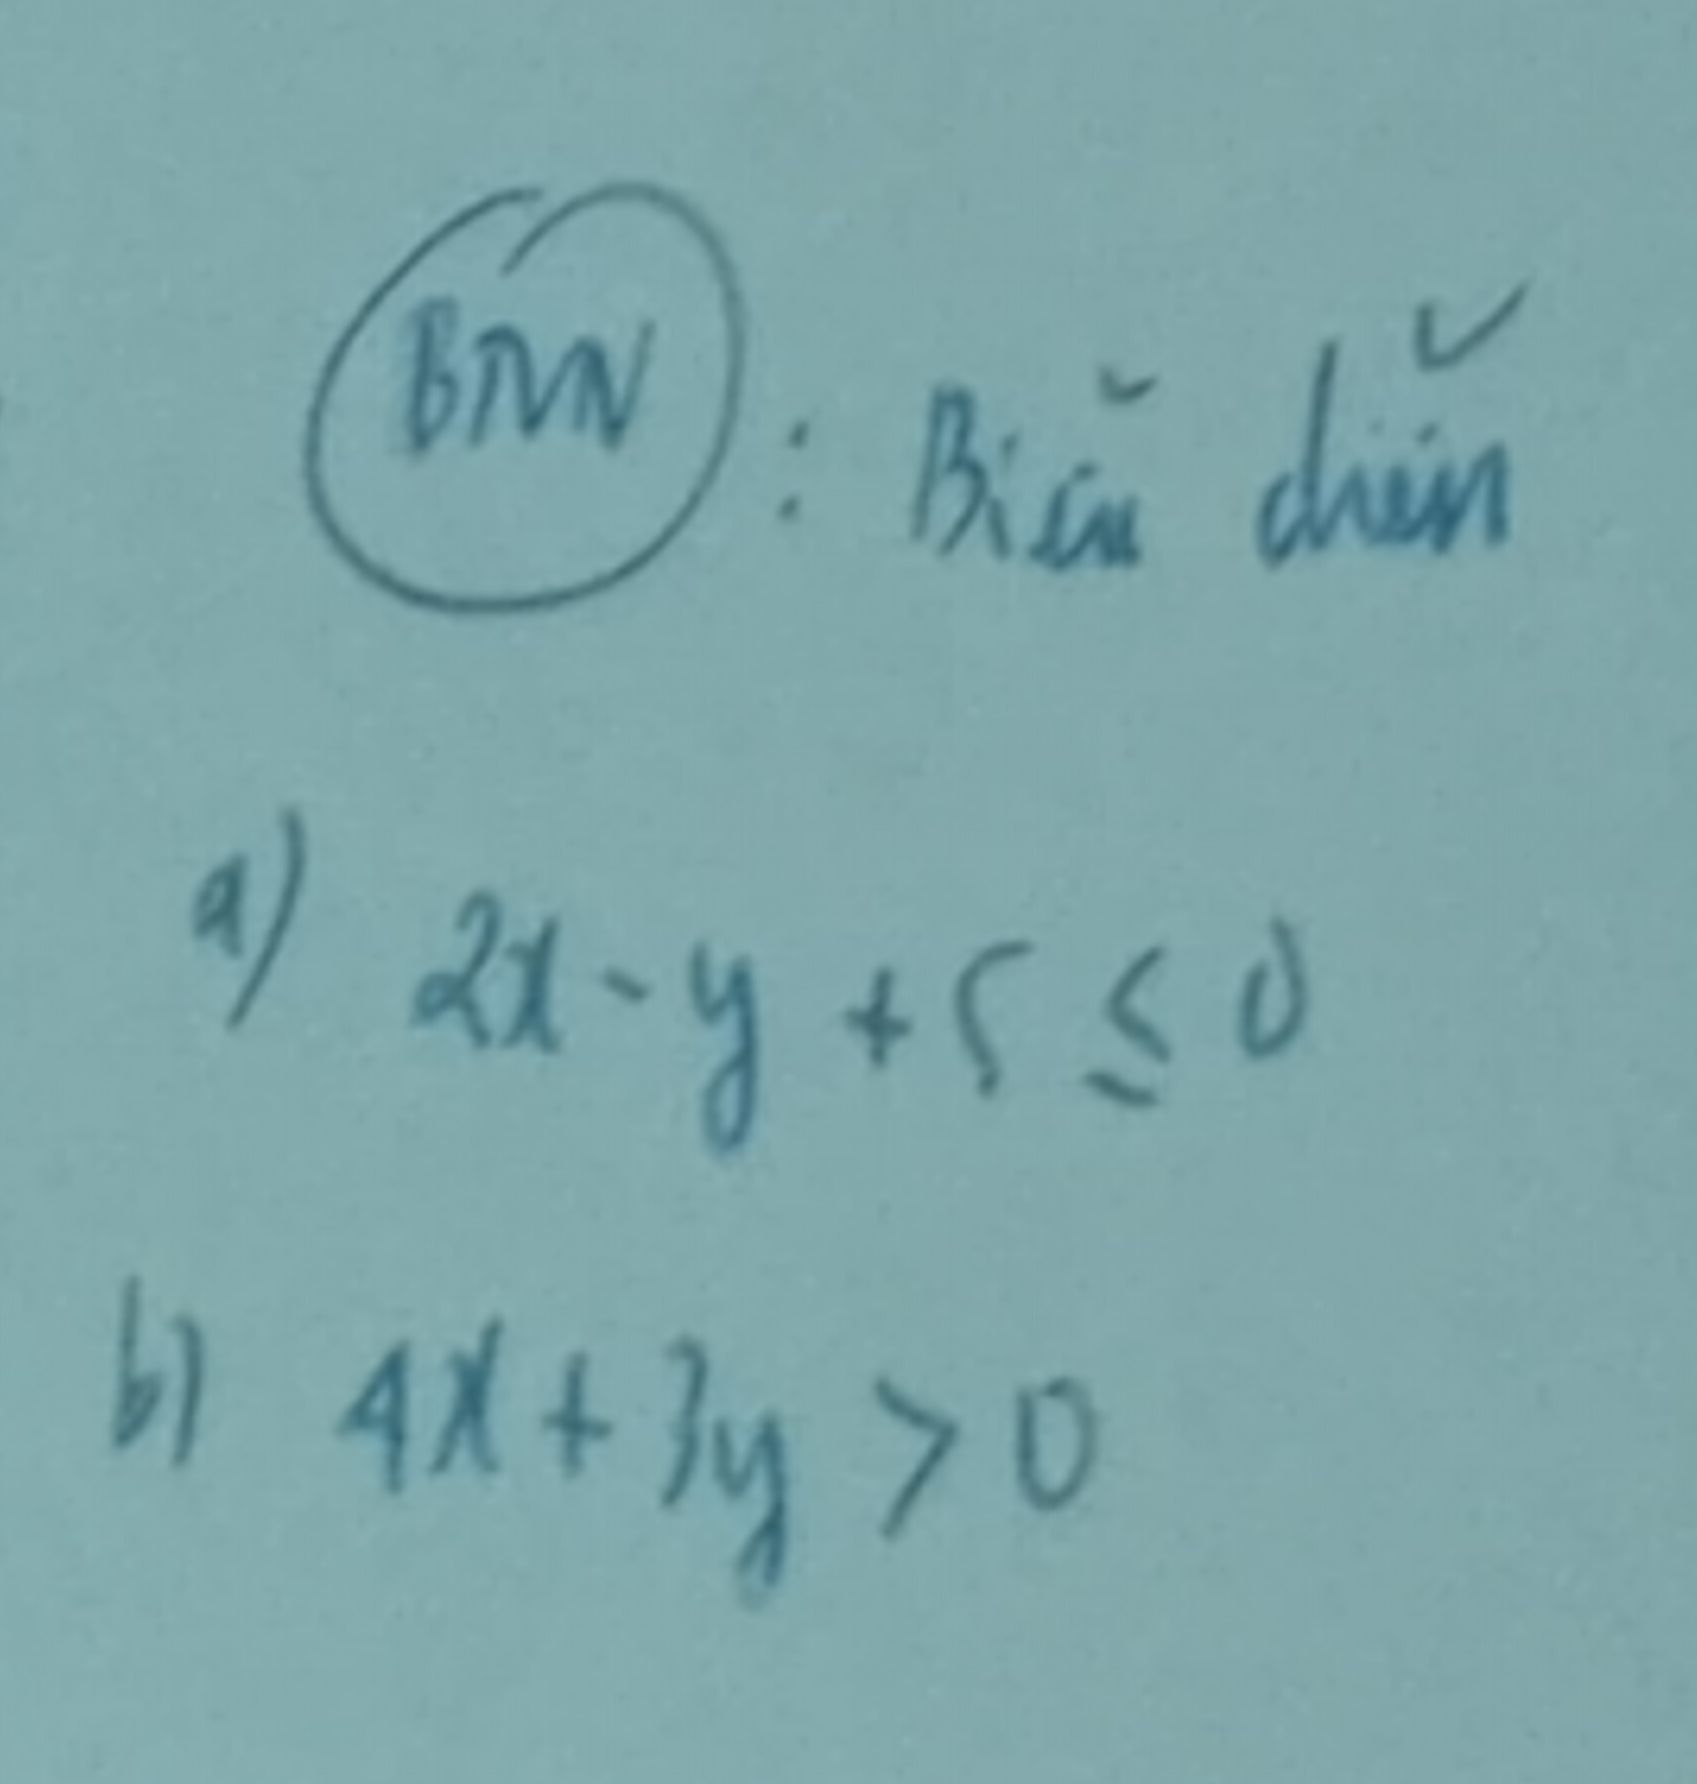 BTVN : Biểu diễn
a) 2x - y + 5 ≤ 0
b) 4x + 3y > 0